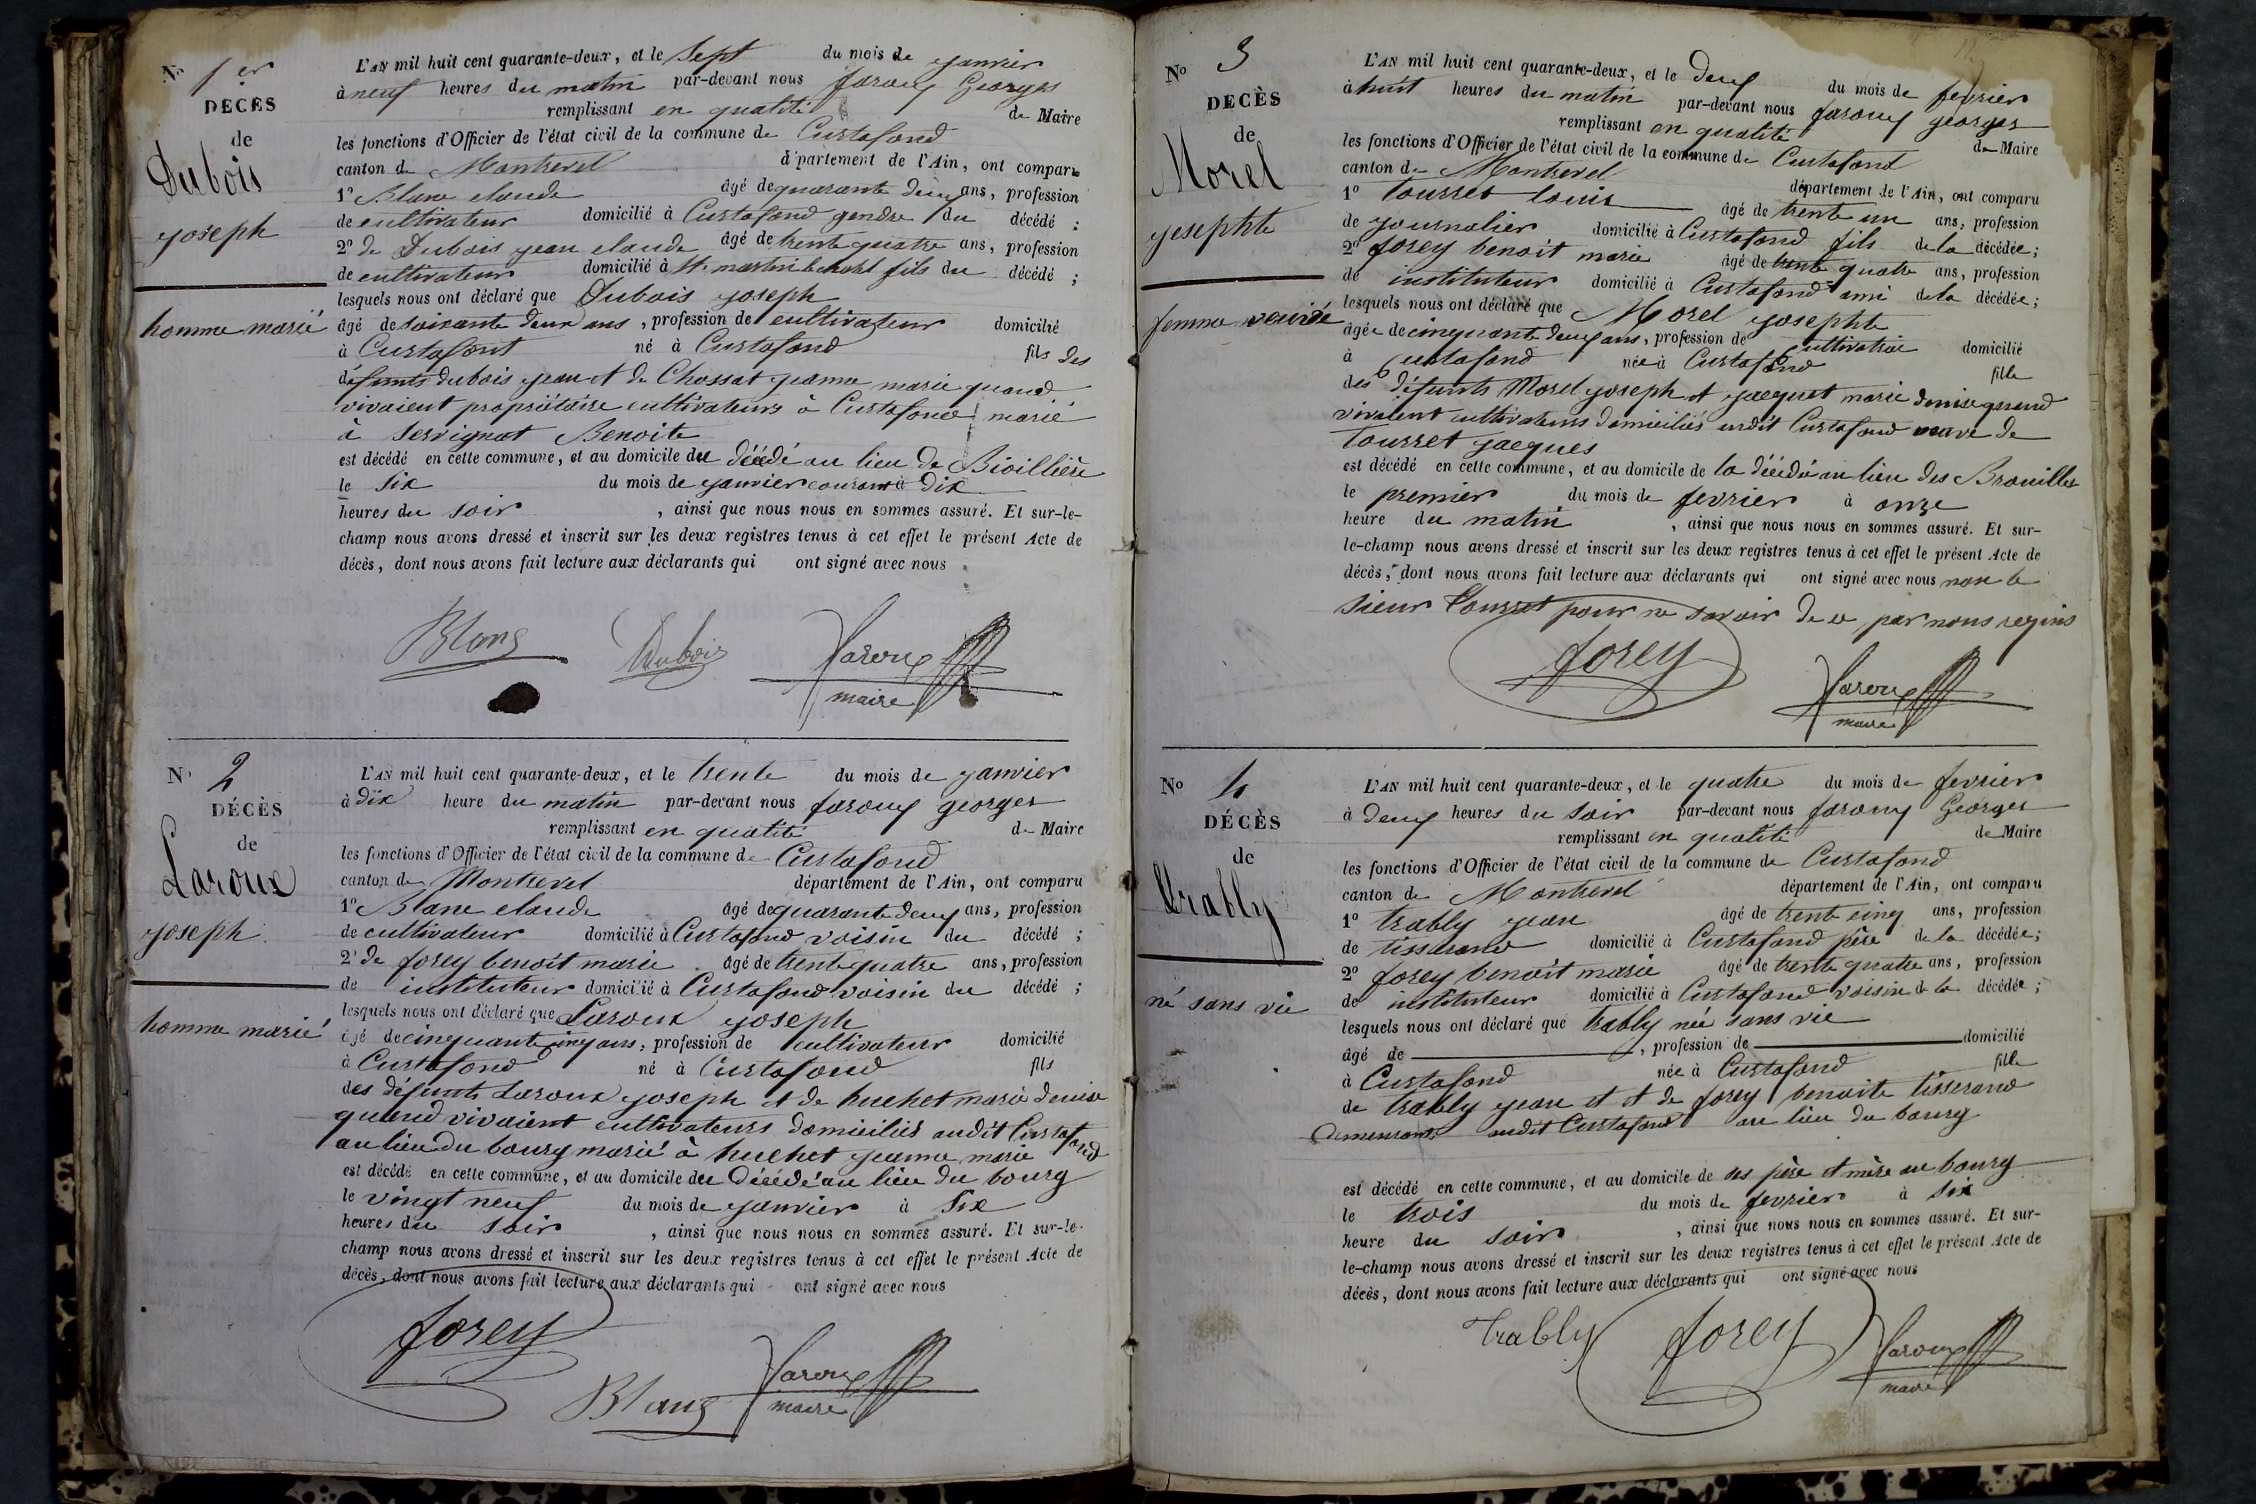 No 1er
DÉCÈS
de
Dubois
joseph
homme marié
L'AN mil huit cent quarante-deux, et le Sept du mois de janvier
à neuf heures du matin par-devant nous faroux Georges
remplissant en qualité de Maire
les fonctions d'Officier de l'état civil de la commune de Curtafond
canton de Montrevel département de l'Ain, ont comparu
1o Blanc claude âgé de quarante deux ans, profession
de cultivateur domicilié à Curtafond gendre du décédé ;
2o de Dubois jean claude âgé de trente quatre ans, profession
de cultivateur domicilié à St. martin le chatel fils du décédé ;
lesquels nous ont déclaré que Dubois joseph
âgé de soixante deux ans, profession de cultivateur domicilié
à Curtafont né à Curtafond fils des
défunts dubois jean et de Chossat jeanne marie quand
vivaient propriétaire cultivateurs à Curtafond marié
à Servignat Benoite
est décédé en cette commune, et au domicile du décédé au lieu de Bioillière
le six du mois de janvier courant à dix
heures du soir , ainsi que nous nous en sommes assuré. Et sur-le-
champ nous avons dressé et inscrit sur les deux registres tenus à cet effet le présent Acte de
décès, dont nous avons fait lecture aux déclarants qui ont signé avec nous
Blanc Dubois faroux
maire
No 2
DÉCÈS
de
Laroux
joseph
homme marié
L'AN mil huit cent quarante-deux, et le trente du mois de janvier
à dix heure du matin par-devant nous faroux georges
remplissant en qualité de Maire
les fonctions d'Officier de l'état civil de la commune de Curtafond
canton de Montrevel département de l'Ain, ont comparu
1o Blanc claude âgé de quarante deux ans, profession
de cultivateur domicilié à Curtafond voisin du décédé ;
2o de forey benoit marie âgé de trente quatre ans, profession
de instituteur domicilié à Curtafond voisin du décédé ;
lesquels nous ont déclaré que Laroux joseph
âgé de cinquante cinq ans, profession de cultivateur domicilié
à Curtafond né à Curtafond fils
des défunts Laroux joseph et de huchet marie denise
quand vivaient cultivateurs domiciliés audit Curtafond
au lieu du bourg marié à huchet jeanne marie
est décédé en cette commune, et au domicile du décédé au lieu du bourg
le vingt neuf du mois de janvier à six
heures du soir , ainsi que nous nous en sommes assuré. Et sur-le-
champ nous avons dressé et inscrit sur les deux registres tenus à cet effet le présent Acte de
décès, dont nous avons fait lecture aux déclarants qui ont signé avec nous
forey
Blanc faroux
maire
No 3
DÉCÈS
de
Morel
josephte
femme veuve
L'AN mil huit cent quarante-deux, et le deux du mois de fevrier
à huit heures du matin par-devant nous faroux georges
remplissant en qualité de Maire
les fonctions d'Officier de l'état civil de la commune de Curtafond
canton de Montrevel département de l'Ain, ont comparu
1o tourret louis âgé de trente un ans, profession
de journalier domicilié à Curtafond fils de la décédée ;
2o forey benoit marie âgé de trente quatre ans, profession
de instituteur domicilié à Curtafond ami de la décédée ;
lesquels nous ont déclaré que Morel josephte
âgée de cinquante deux ans, profession de cultivatrice domicilié
à Curtafond née à Curtafond fille
des défunts Morel joseph et jacquet marie denise quand
vivaient cultivateurs domiciliés audit Curtafond veuve de
tourret jacques
est décédé en cette commune, et au domicile de la décédée au lieu des Brouilles
le premier du mois de fevrier à onze
heure du matin , ainsi que nous nous en sommes assuré. Et sur-
le-champ nous avons dressé et inscrit sur les deux registres tenus à cet effet le présent Acte de
décès, dont nous avons fait lecture aux déclarants qui ont signé avec nous non le
sieur tourret pour ne savoir de ce par nous requis
forey
faroux
maire
No 4
DÉCÈS
de
trably
né sans vie
L'AN mil huit cent quarante-deux, et le quatre du mois de fevrier
à deux heures du soir par-devant nous faroux Georges
remplissant en qualité de Maire
les fonctions d'Officier de l'état civil de la commune de Curtafond
canton de Montrevel département de l'Ain, ont comparu
1o trably jean âgé de trente cinq ans, profession
de tisserand domicilié à Curtafond père de la décédée ;
2o forey benoit marie âgé de trente quatre ans, profession
de instituteur domicilié à Curtafond voisin de la décédée ;
lesquels nous ont déclaré que trably née sans vie
âgé de , profession de domicilié
à Curtafond née à Curtafond fille
de trably jean et et de forey benoite tisserand
demeurant audit Curtafond au lieu du bourg
est décédé en cette commune, et au domicile de ses père et mère au bourg
le trois du mois de fevrier à six
heure du soir , ainsi que nous nous en sommes assuré. Et sur-
le-champ nous avons dressé et inscrit sur les deux registres tenus à cet effet le présent Acte de
décès, dont nous avons fait lecture aux déclarants qui ont signé avec nous
trably forey faroux
maire